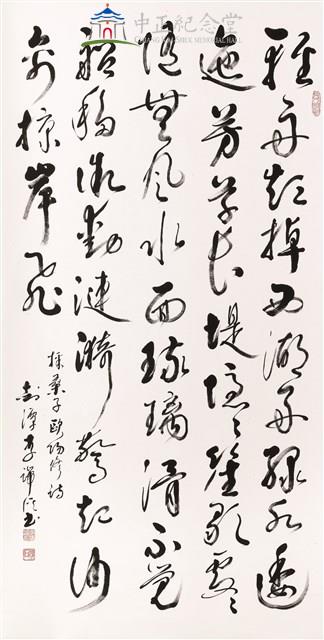 中正紀念堂
CHIANG KAI-SHEK MEMORIAL HALL
輕舟短棹西湖好綠水逶
迤芳草長堤隱〻笙歌處〻
隨無風水面琉璃滑不覺
船移微動漣漪驚起沙
禽掠岸飛
採桑子歐陽修詩
李瑞